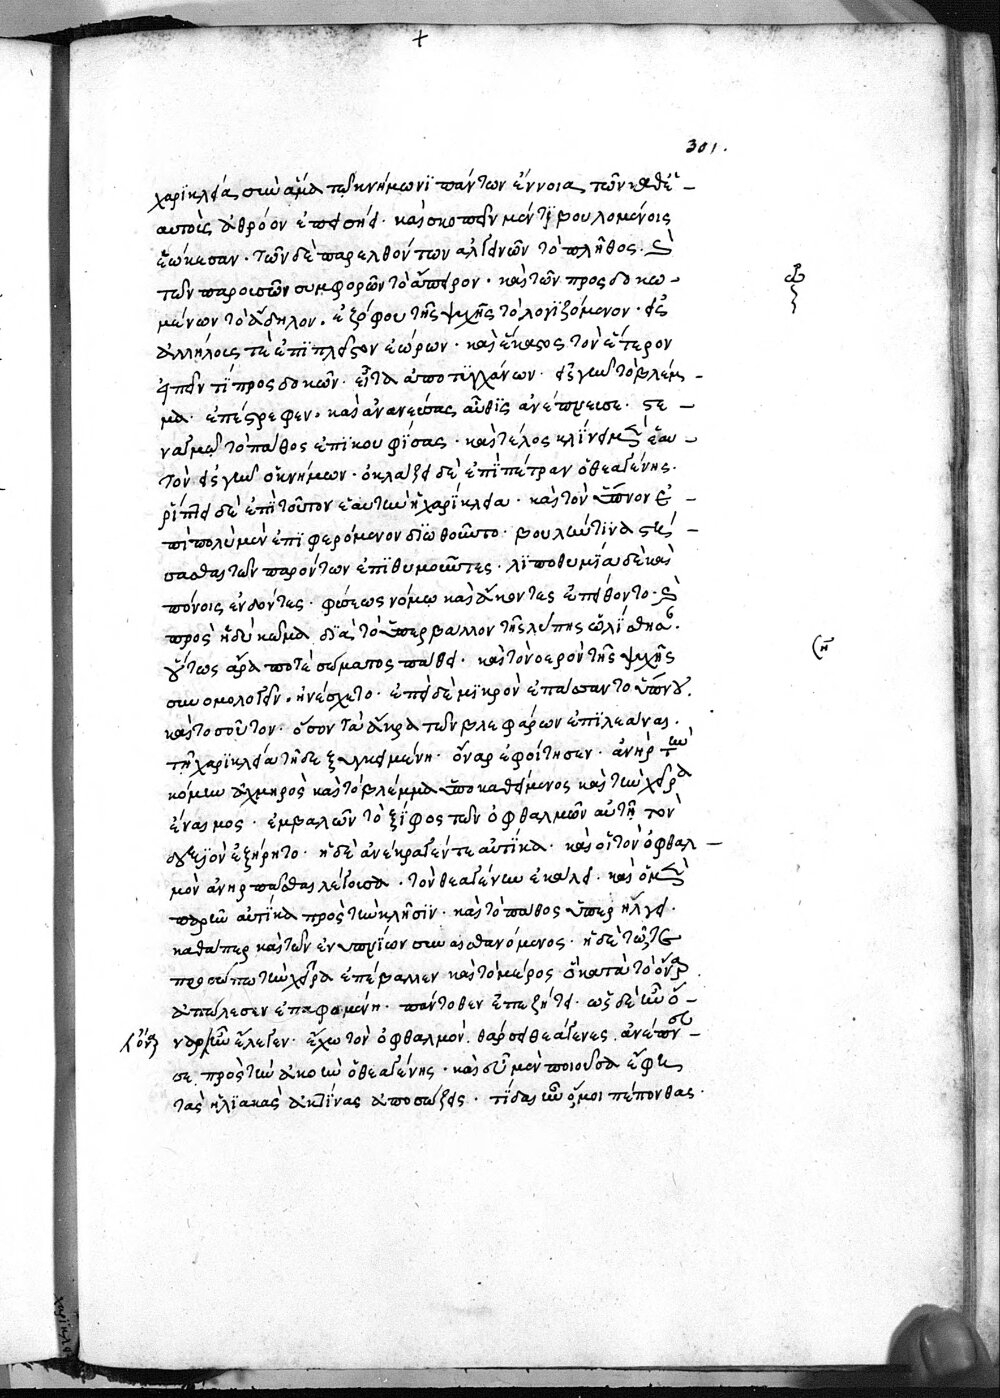 χαρϊκλείας σὺν ἅμα τῶ κνήμωνϊ πάντων ἔννοια, τῶν καθ' ἑ-
αυτοὺς ἀθρόον ἐπείσηει. καὶ σκοπεῖν μέν τϊ βουλομένοις
ἐώκεσαν. τῶν δὲ παρελθόντων ἀλγεινῶν τὸ πλῆθος. καὶ
τῶν παρουσῶν συμφορῶν τὸ ἄπορον. καὶ τῶν προσδοκω-
μένων τὸ ἄδηλον. ἐζόφου τῆς ψυχῆς τὸ λογϊζόμενον. εἰς
ἀλλήλους τὲ ἐπϊπλεῖστον ἑώρων. καὶ ἕκαστος τὸν ἕτερον
εἰπεῖν τὶ προσδοκῶν. εἶτα ἀποτϋγχάνων. εἰς γῆν τὸ βλέμ-
μα ἐπέστρεφεν. καὶ ἀνανεύσας αὖθϊς ἀνέπνευσε. στε-
ναγμῶ τὸ πάθος ἐπϊκουφίσας. καὶ τέλος κλϊνει μὲν ἑαυ-
τὸν εἰς γῆν ὁ κνήμων. ὀκλάζει δὲ ἐπὶ πέτραν ὁ θεαγένης.
ῥίπτει δὲ ἐπὶ τοῦτον ἑαυτὴν ἡ χαρϊκλεια. καὶ τὸν ὕπνον ἐ-
πὶ πολὺ μὲν ἐπϊφερόμενον διωθοῦντο. βουλὴν τϊνα στή-
σασθαι τῶν παρόντων ἐπϊθυμοῦντες. λϊποθυμϊα δὲ καὶ
πόνοις ἐνδόντες. φύσεως νόμω καὶ ἄκοντες ἐπείθοντο. καὶ
πρὸς ἡδὺ κῶμα διὰ τὸ ὑπερβαλλον τῆς λύπης ὠλϊσθησαν.
οὕτως ἄρα ποτὲ σώματος πάθει. καὶ τὸ νοερὸν τῆς ψυχῆς
συνομολογεῖν. ἠνέσχετο. ἐπεὶ δὲ μϊκρὸν ἐπαύσαντο ὕπνου.
καὶ τοσοῦτον. ὅσον τὰ ἄκρα τῶν βλεφάρων ἐπϊλεαναι.
τῆ χαρϊκλεία τῆδε ξυγκειμένη. ὄναρ ἐφοίτησεν. ἀνὴρ τὴν
κόμην αὐχμηρὸς καὶ τὸ βλέμμα ὑποκαθείμενος καὶ τὴν χεῖρα
ἔναιμος. ἐμβαλὼν τὸ ξϊφος τὸν ὀφθαλμὸν αὐτῆ τὸν
δεξϊὸν ἐξήρητο. ἡ δὲ ἀνέκραγέν τε αὐτϊκα. καὶ οἱ τὸν ὀφθαλ-
μὸν ἀνηρπάσθαι λέγουσα. τὸν θεαγένην ἐκάλει. καὶ ὁ μὲν
παρῆν αὐτίκα πρὸς τὴν κλῆσϊν. καὶ τὸ πάθος ὑπερήλγει.
καθάπερ καὶ τῶν ἐνυπνϊων συναισθανόμενος. ἡ δὲ τῶ τε
προσώπω τὴν χεῖρα ἐπέβαλλεν καὶ τὸ μέρος ὃ κατὰ τὸ ὄναρ
ἀπώλεσεν ἐπαφομένη. πάντοθεν ἐπεζήτει. ὡς δὲ ἦν ὄ-
ναρ ἦν ἔλεγεν. ἔχω τὸν ὀφθαλμόν. θάρσει θεάγενες. ἀνέπνευ-
σε πρὸς τὴν ἀκοὴν ὁ θεαγένης. καὶ εὖ μὲν ποιοῦσα ἔφη
τὰς ἡλϊακὰς ἀκτῖνας ἀποσώζεις. τϊ δαὶ ἦν ὅ μοι πέπονθας.
301.